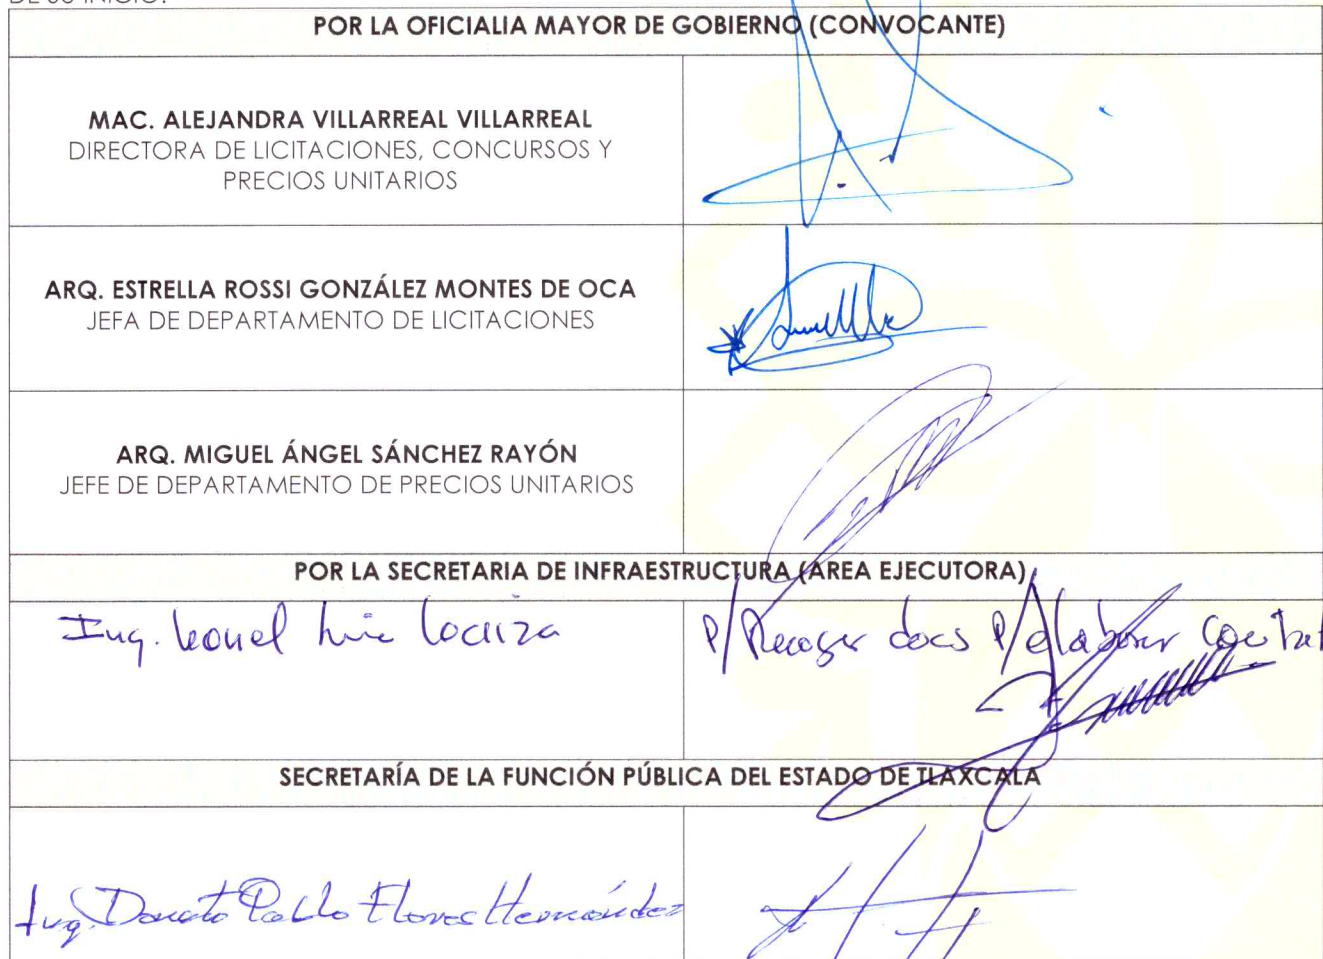 DE SU INICIO.
POR LA OFICIALIA MAYOR DE GOBIERNO (CONVOCANTE)
MAC. ALEJANDRA VILLARREAL VILLARREAL
DIRECTORA DE LICITACIONES, CONCURSOS Y
PRECIOS UNITARIOS
ARQ. ESTRELLA ROSSI GONZÁLEZ MONTES DE OCA
JEFA DE DEPARTAMENTO DE LICITACIONES
ARQ. MIGUEL ÁNGEL SÁNCHEZ RAYÓN
JEFE DE DEPARTAMENTO DE PRECIOS UNITARIOS
POR LA SECRETARIA DE INFRAESTRUCTURA (ÁREA EJECUTORA)
Ing. Leonel
P/Recoger docs P/elaborar
SECRETARÍA DE LA FUNCIÓN PÚBLICA DEL ESTADO DE TLAXCALA
Ing. Donato Pablo Flores Hernández